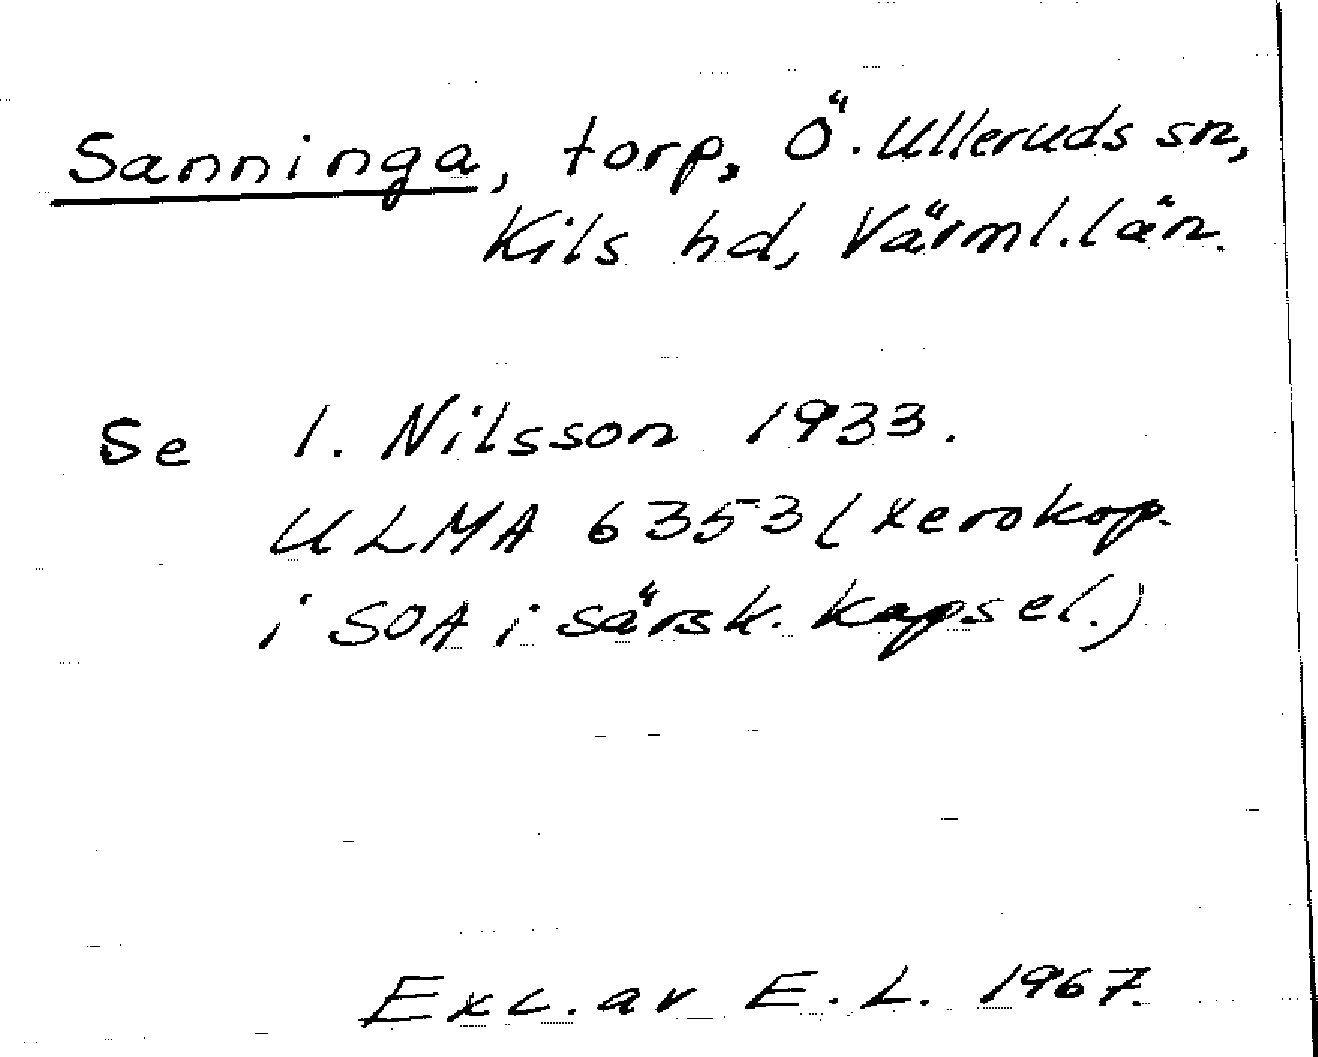 Sanninga, torp, Ö. Ulleruds sn,
Kils hd, Värml. län.
Se I. Nilsson 1933.
ULMA 6353 (xerokop.
i SOA i särsk. kapsel.)
Exc. av E. L. 1967.